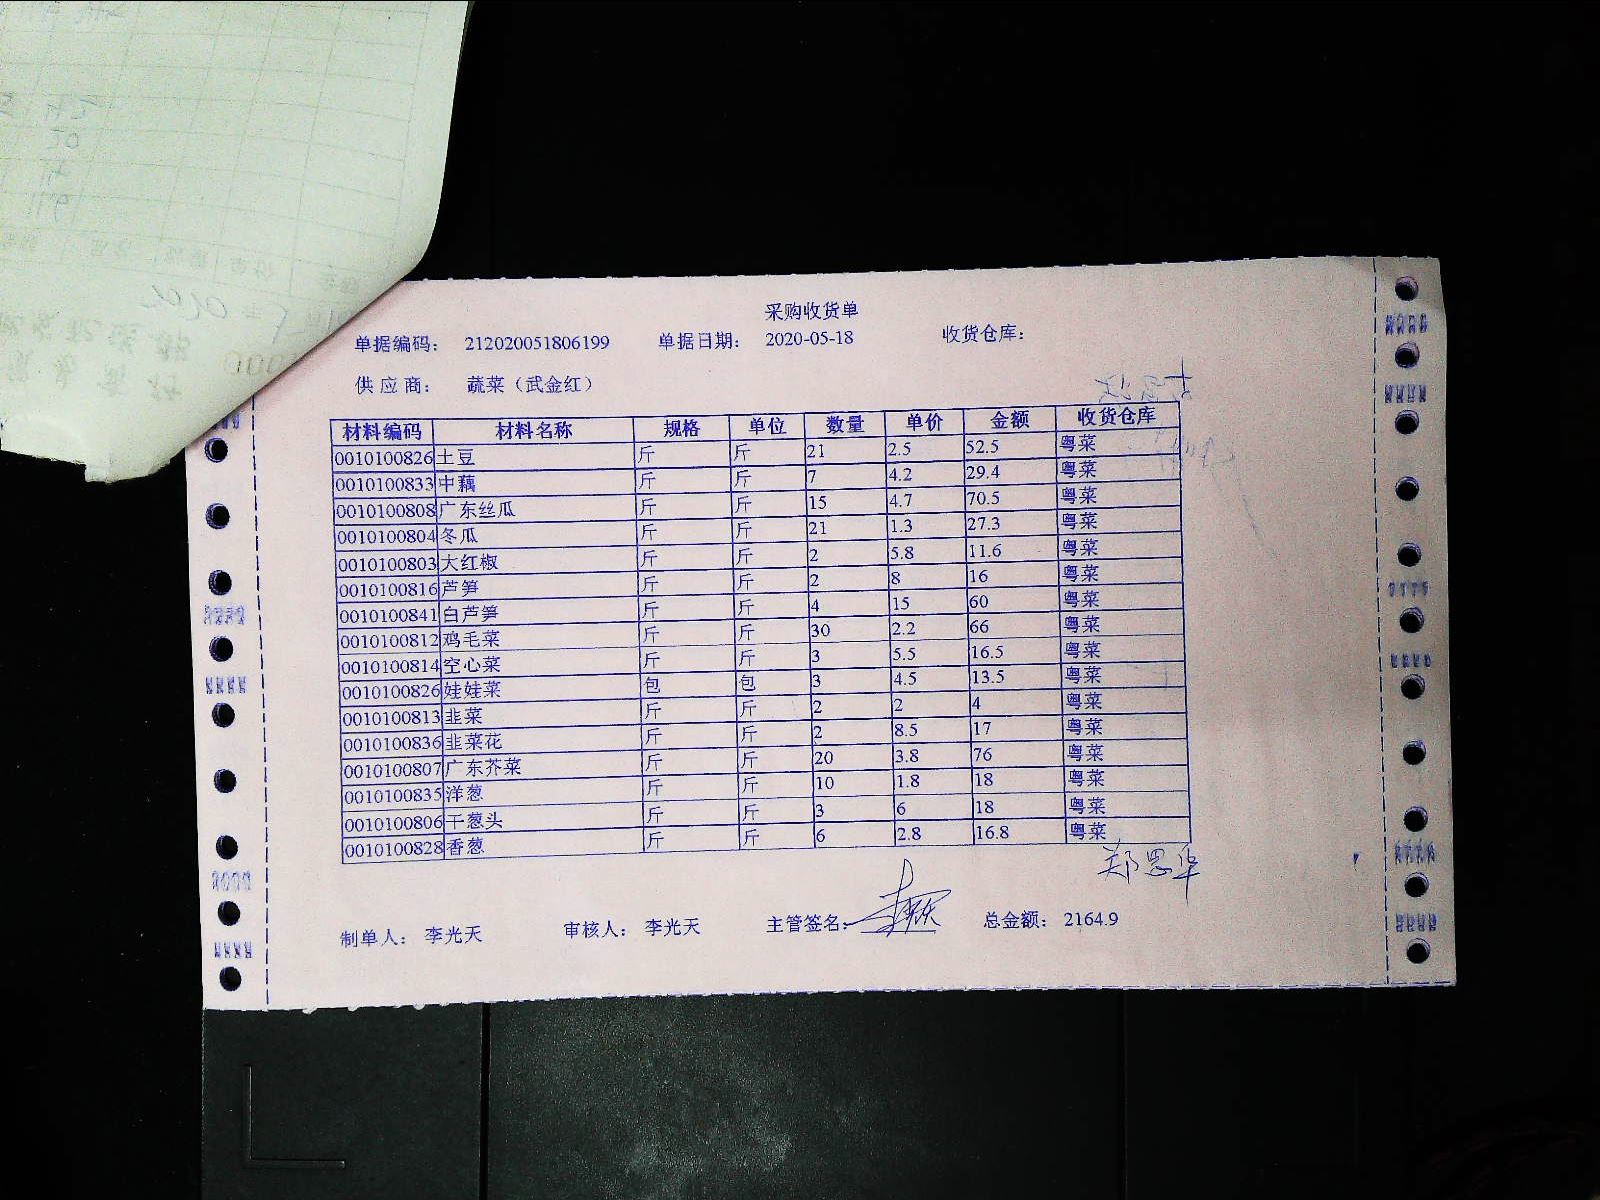 采购收货单
单据编码： 212020051806199 单据日期： 2020-05-18 收货仓库：
供 应 商： 蔬菜（武金红）
材料编码 材料名称 规格 单位 数量 单价 金额 收货仓库
0010100826 土豆 斤 斤 21 2.5 52.5 粤菜
0010100833 中藕 斤 斤 7 4.2 29.4 粤菜
0010100808 广东丝瓜 斤 斤 15 4.7 70.5 粤菜
0010100804 冬瓜 斤 斤 21 1.3 27.3 粤菜
0010100803 大红椒 斤 斤 2 5.8 11.6 粤菜
0010100816 芦笋 斤 斤 2 8 16 粤菜
0010100841 白芦笋 斤 斤 4 15 60 粤菜
0010100812 鸡毛菜 斤 斤 30 2.2 66 粤菜
0010100814 空心菜 斤 斤 3 5.5 16.5 粤菜
0010100826 娃娃菜 包 包 3 4.5 13.5 粤菜
0010100813 韭菜 斤 斤 2 2 4 粤菜
0010100836 韭菜花 斤 斤 2 8.5 17 粤菜
0010100807 广东芥菜 斤 斤 20 3.8 76 粤菜
0010100835 洋葱 斤 斤 10 1.8 18 粤菜
0010100806 干葱头 斤 斤 3 6 18 粤菜
0010100828 香葱 斤 斤 6 2.8 16.8 粤菜
郑思华
制单人： 李光天 审核人： 李光天 主管签名： 总金额： 2164.9